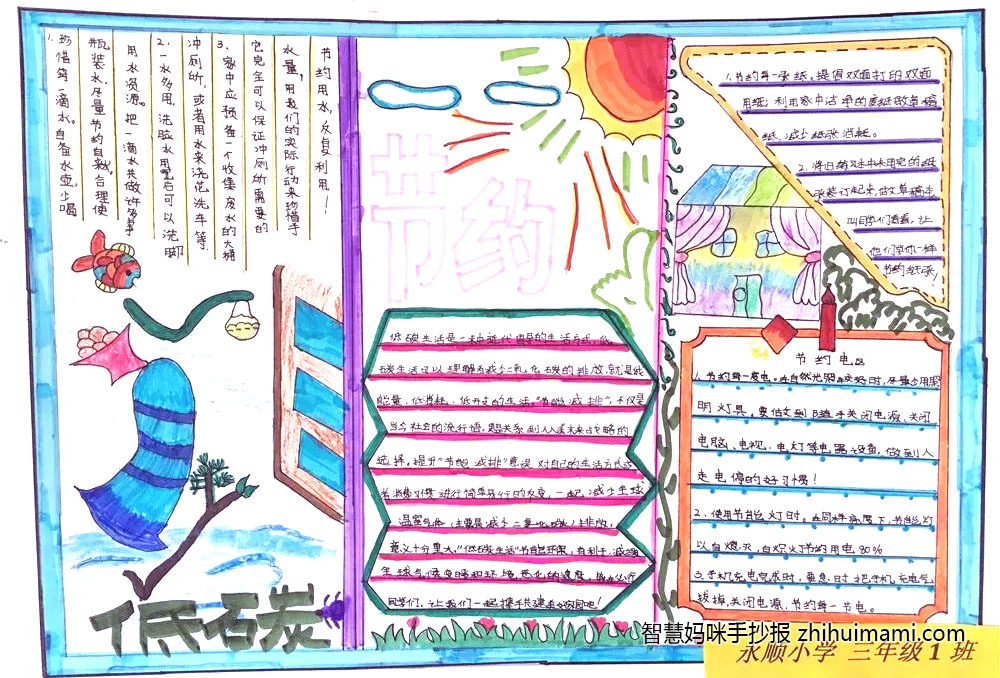 节约用水,反复利用!
水量,用我们的实际行动来珍惜手
它完全可以保证冲厕所需要的
3.家中应预备一个收集废水的大桶
冲厕所,或者用水来浇花洗车等.
2.一水多用,洗脸水用完后可以洗脚
用水资源。把一滴水共做许多事
瓶装水,尽量节约自来,合理使
1.珍惜每一滴水。自备水壶,少喝
低碳
节约
低碳生活是一种
碳生活可以理解为减少二氧化碳的排放,就是低
能量、低消耗、低开支的生活。"节能减排",不仅是
当今社会的流行语,更是关系到人类未来战略的
选择。提升"节能减排"意识,对自己的生活方式或
者消费习惯进行简单易行的改变,一起减少全球
温室气体(主要是减少二氧化碳)排放,
意义十分重大。"低碳生活"节能环保,有利于减缓
全球气候变暖和环境恶化的速度,
同学们,让我们一起携手共建美好家园吧!
1.节约每一张纸,提倡双面打印双面
用纸;利用家中洁净的废纸做草稿
纸,减少纸张消耗。
2.将旧
来装订起来做草稿本
叫同学们看看,让
他们学你一样
节约纸张!
节约电
1.节约每一度电。在自然光照良好时,尽量少用照
明灯具。要做到随手关闭电源、关闭
电脑、电视、电灯等电器设备,做到人
走电停的好习惯!
2、使用节能灯时。在同样亮度下,节能灯
以白炽灭,白炽灯节约用电80%
3.手机充电完成时,要及时把手机充电气
拔掉,关闭电源,节约每一节电。
智慧妈咪手抄报 zhihuimami.com
永顺小学 三年级1班